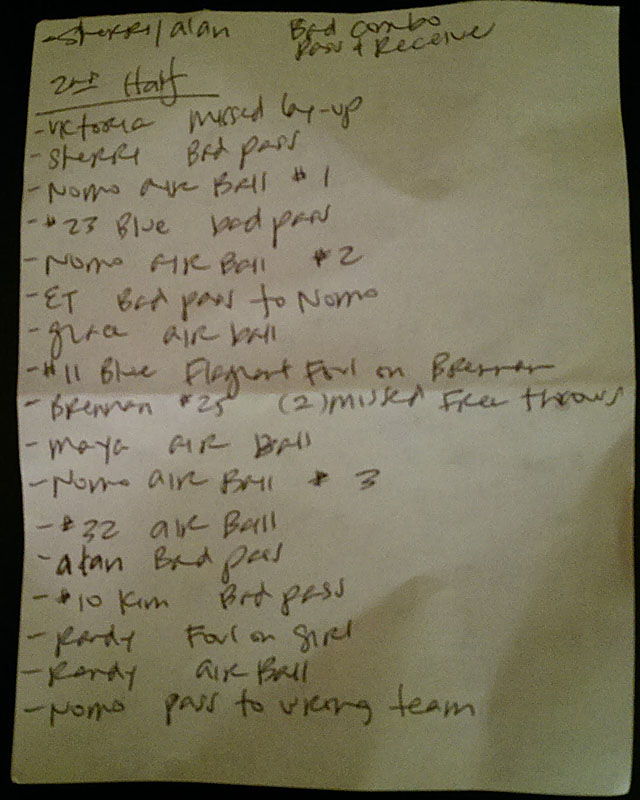 - Sherri/alan Bad combo
Pass & Receive
2nd Half
- Victoria missed lay-up
- Sherri Bad pass
- Nomo air Ball #1
- #23 Blue bad pass
- Nomo air Ball #2
- ET Bad pass to Nomo
- grace air ball
- #11 Blue Flagrant Foul on Brennan
- Brennan #25 (2) missed Free throws
- maya air Ball
- Nomo air Ball # 3
- #32 air Ball
- alan Bad pass
- #10 Kim Bad pass
- Randy Foul on girl
- Randy air Ball
- Nomo pass to viking team